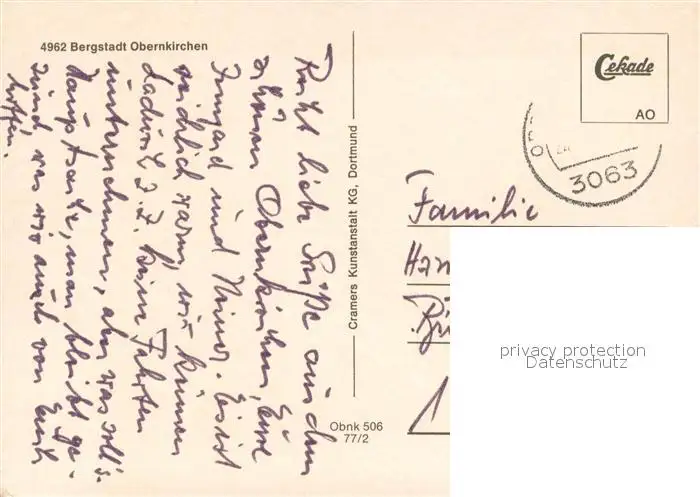 4962 Bergstadt Obernkirchen
Cekade
AO
3063
Recht liebe Grüße aus dem
schönen Obernkirchen, Eure
Irmgard und Heiner. Es ist
reichlich warm, wir können
dadurch z.Z. keine Fahrten
unternehmen, aber was soll's.
Hauptsache, man bleibt ge-
sund, was wir auch von Euch
hoffen.
Cramers Kunstanstalt KG, Dortmund
Obnk 506
77/2
Familie
privacy protection
Datenschutz